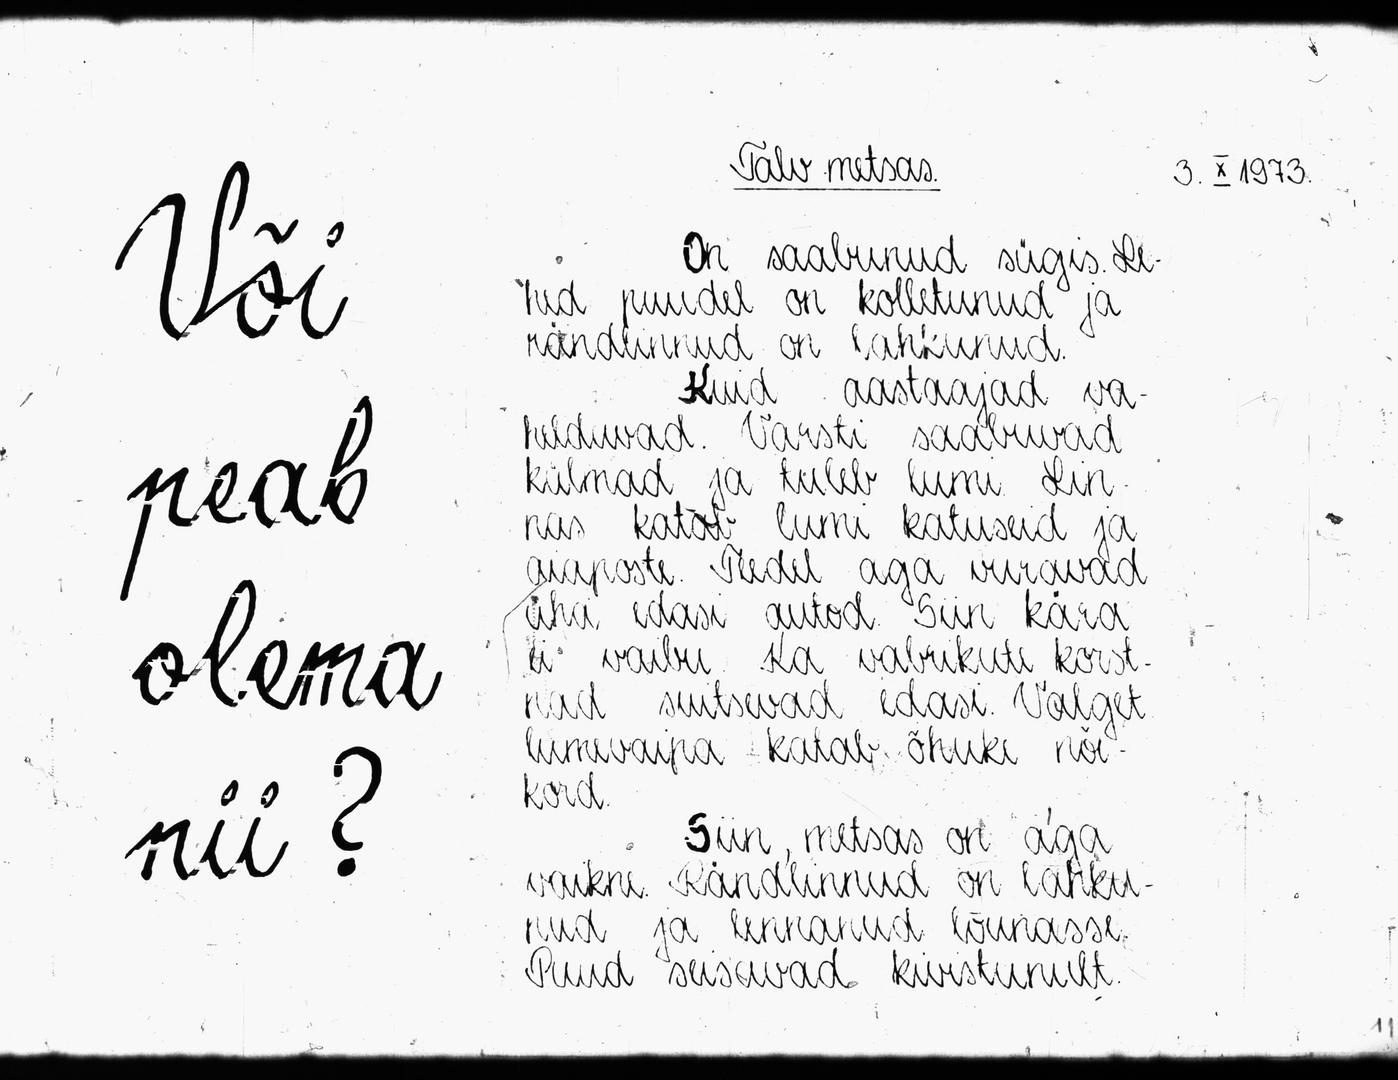 Või
peab
olema
nii?
Talv metsas.
3. X 1973.
On saabunud sügis. Le-
hed puudel on kolletunud ja
rändlinnud on lahkunud.
Kuid aastaajad va-
helduvad. Varsti saabuvad
külmad ja tuleb lumi. Lin-
nas katab lumi katuseid ja
aiaposte. Teedel aga vuravad
üha edasi autod. Siin kära
ei vaibu. Ka vabrikute korst-
nad suitsevad edasi. Valget
lumevaipa katab õhuke nõe-
kord.
Siin, metsas on aga
vaikne. Rändlinnud on lahku-
nud ja lennanud lõunasse.
Puud seisavad kivistunult.
11